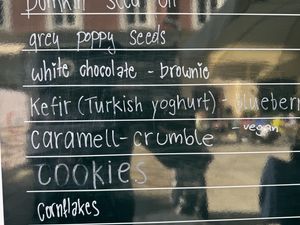 pumkin seed oil
grey poppy seeds
white chocolate - brownie
Kefir (Turkish yoghurt) - blueberr
caramell-crumble - vegan
COOKIES
Cornflakes